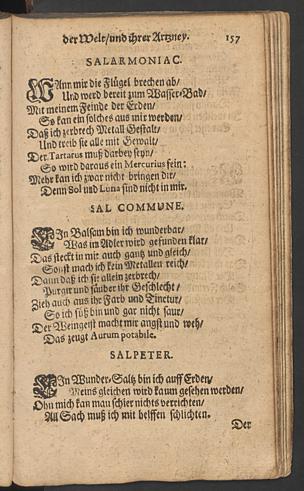 der Welt/und ihrer Artzney. 157
SALARMONIAC.
WAnn mir die Flügel brechen ab/
Und werd bereit zum Wasser-Bad/
Mit meinem Feinde der Erden/
So kan ein solches aus mir werden/
Daß ich zerbrech Metall Gestalt/
Und treib sie alle mit Gewalt/
Der Tartarus muß darbey seyn/
So wird daraus ein Mercurius fein:
Mehr kan ich zwar nicht bringen dir/
Denn Sol und Luna sind nicht in mir.
SAL COMMUNE.
EIn Balsam bin ich wunderbar/
Was im Adler wird gefunden klar/
Das steckt in mir auch gantz und gleich/
Sonst mach ich kein Metallen reich/
Dann daß ich sie allein zerbrech/
Purgir und säuber ihr Geschlecht/
Zieh auch aus ihr Farb und Tinctur/
So ich süß bin und gar nicht saur/
Der Weingeist macht mir angst und weh/
Das zeugt Aurum potabile.
SALPETER.
EIn Wunder-Saltz bin ich auff Erden/
Meins gleichen wird kaum gesehen werden/
Ohn mich kan man schier nichts verrichten/
All Sach muß ich mit helffen schlichten.
Der